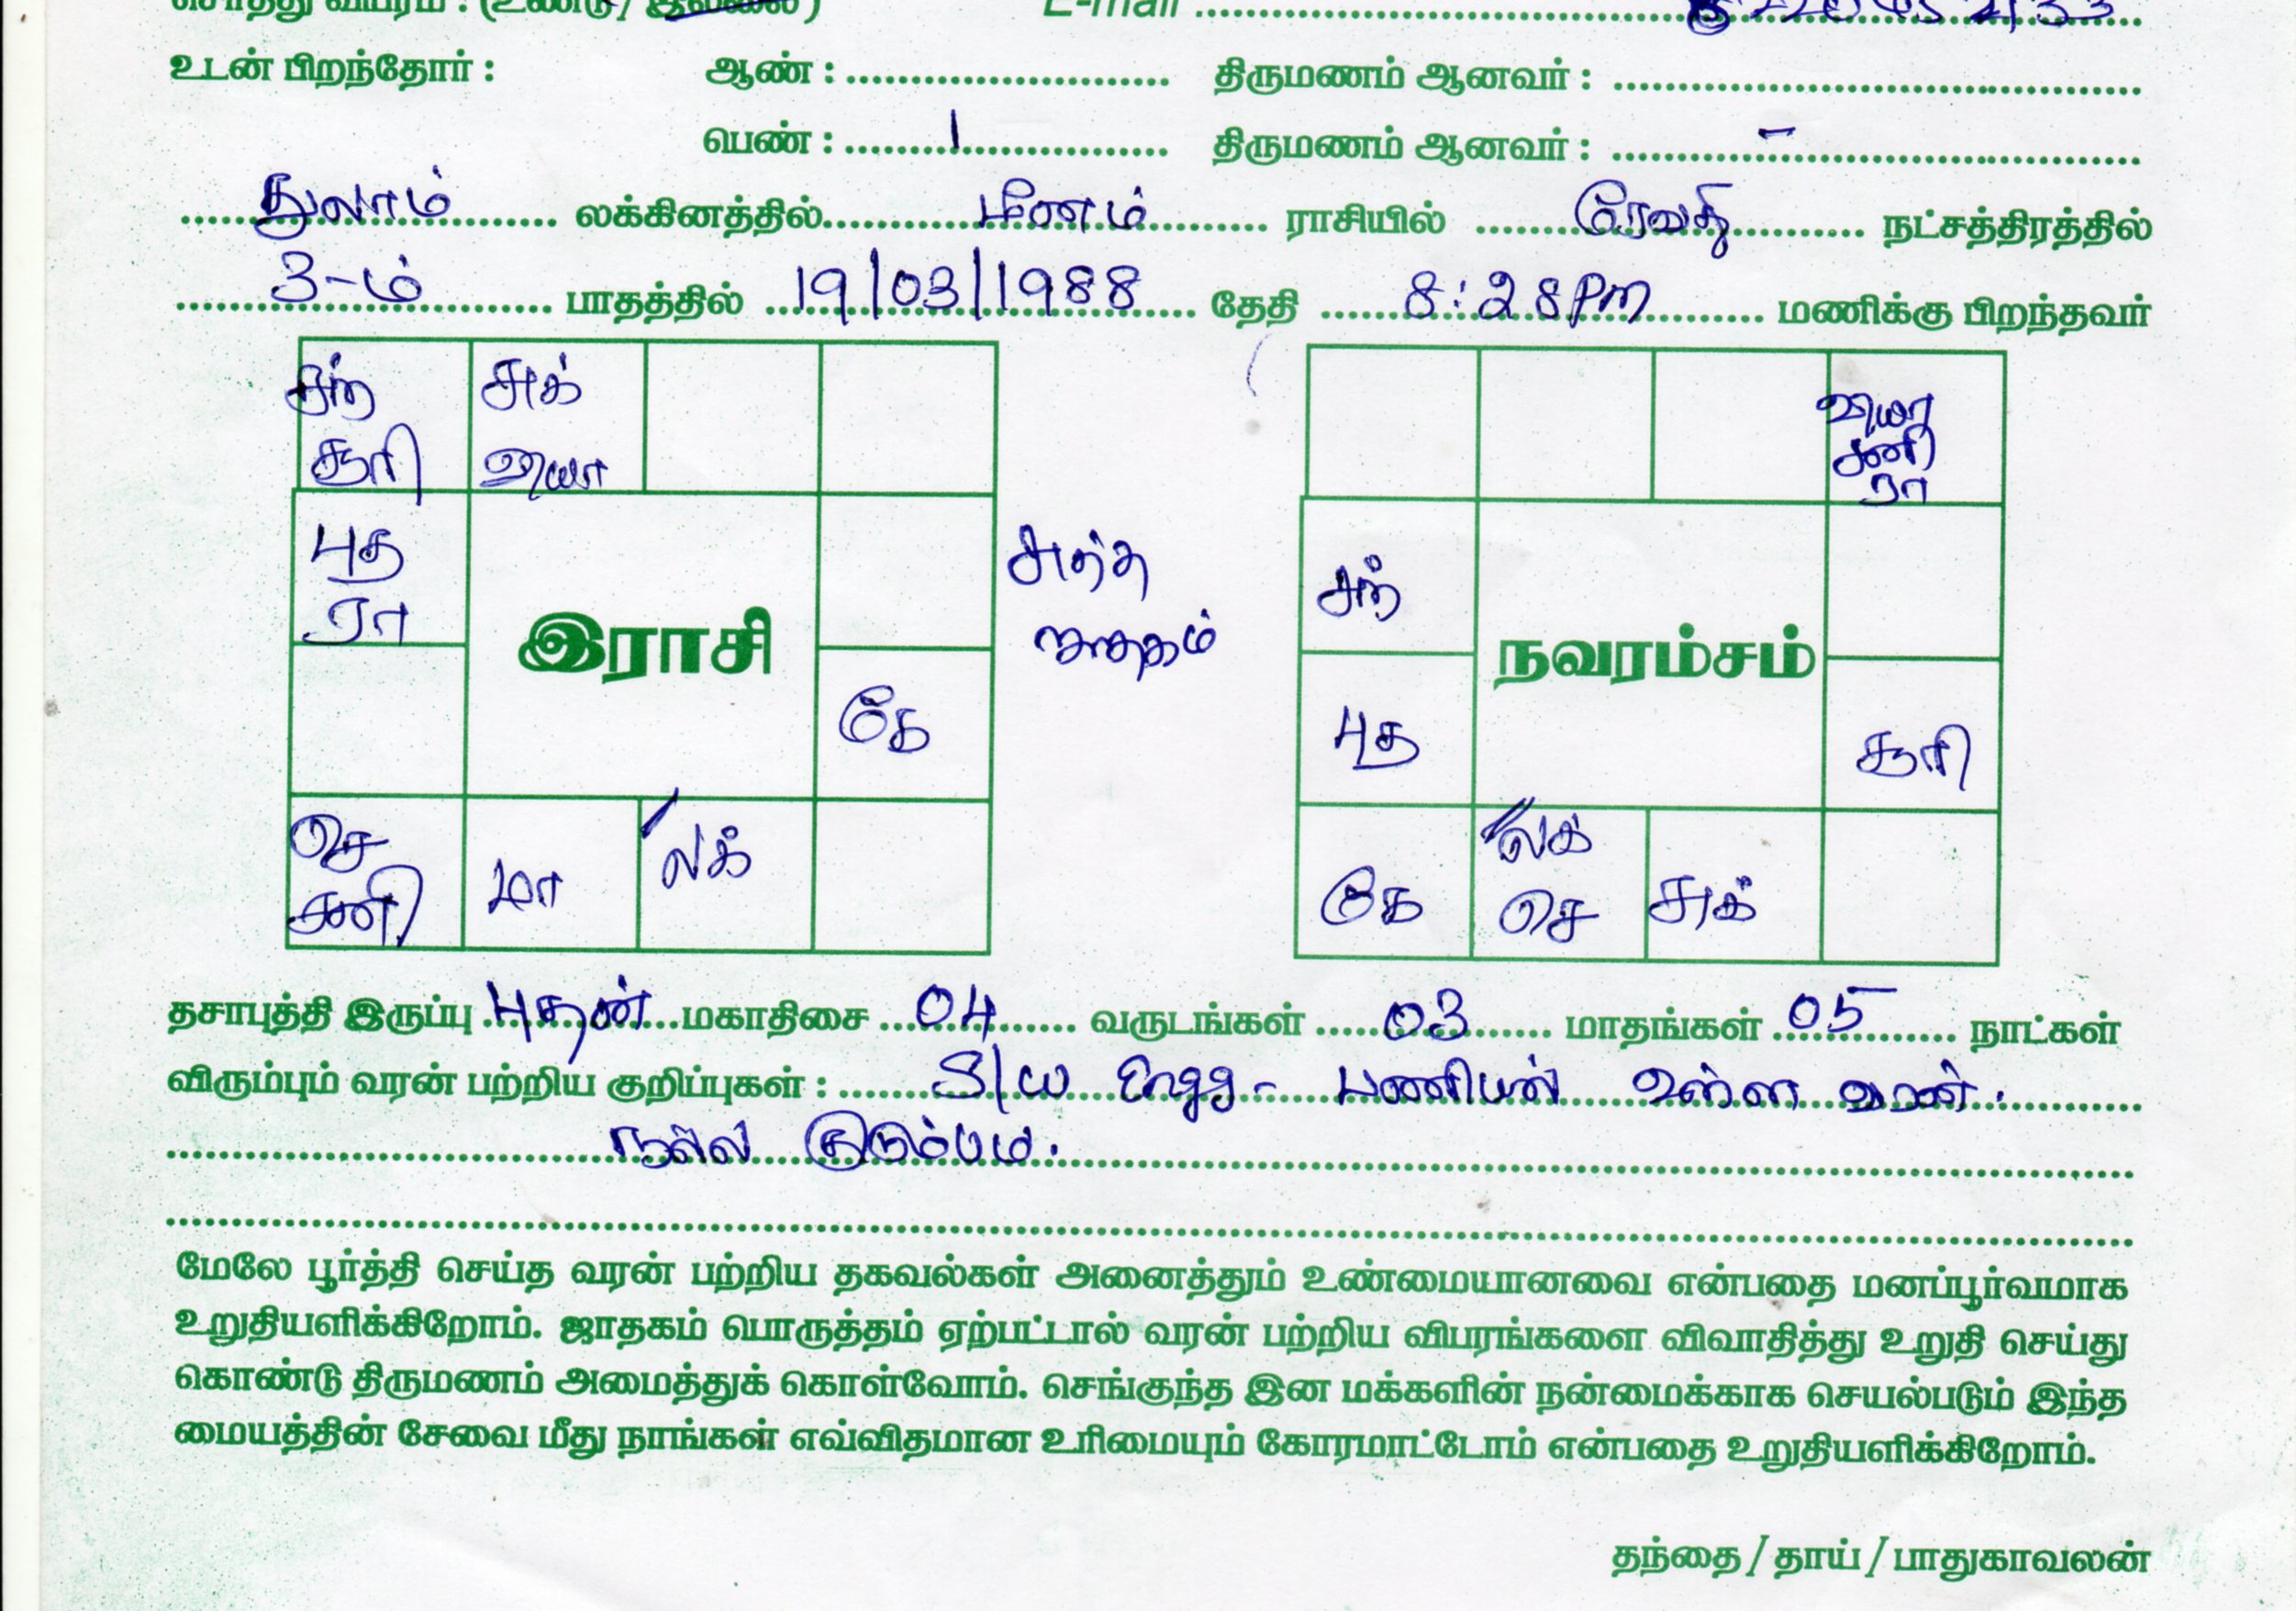 சொத்து விபரம் : (உண்டு / இல்லை) E-mail
உடன் பிறந்தோர் : ஆண் : திருமணம் ஆனவர் :
பெண் : 1 திருமணம் ஆனவர் : -
துலாம் லக்கினத்தில் மீனம் ராசியில் ரேவதி நட்சத்திரத்தில்
3-ம் பாதத்தில் 19/03/1988 தேதி 8:28 PM மணிக்கு பிறந்தவர்
சந் சுக்
சூரி வியா
புத
ரா
இராசி
கே
செ
சனி மா லக்
சுத்த
ஜாதகம்
வியா
சனி
ரா
சந்
நவரம்சம்
புத சூரி
கே லக்
செ சுக்
தசாபுத்தி இருப்பு புதன் மகாதிசை 04 வருடங்கள் 03 மாதங்கள் 05 நாட்கள்
விரும்பும் வரன் பற்றிய குறிப்புகள் : S/W Engg - பணியில் உள்ள
நல்ல குடும்பம்.
மேலே பூர்த்தி செய்த வரன் பற்றிய தகவல்கள் அனைத்தும் உண்மையானவை என்பதை மனப்பூர்வமாக
உறுதியளிக்கிறோம். ஜாதகம் பொருத்தம் ஏற்பட்டால் வரன் பற்றிய விபரங்களை விவாதித்து உறுதி செய்து
கொண்டு திருமணம் அமைத்துக் கொள்வோம். செங்குந்த இன மக்களின் நன்மைக்காக செயல்படும் இந்த
மையத்தின் சேவை மீது நாங்கள் எவ்விதமான உரிமையும் கோரமாட்டோம் என்பதை உறுதியளிக்கிறோம்.
தந்தை / தாய் / பாதுகாவலன்